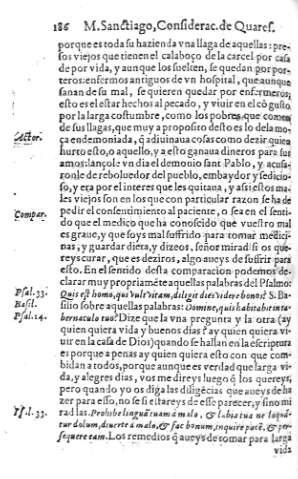 186 M. Sanctiago, Considerac. de Quares.
porque es toda su hazienda vna llaga de aquellas: pre-
sos viejos que tienen el calaboço de la carcel por casa
de por vida, y aunque los suelten, se quedan por por-
teros: enfermos antiguos de vn hospital, que aunque
sanan de su mal, se quieren quedar por enfermeros,
esto es el estar hechos al pecado, y viuir en el cō gusto
por la larga costumbre, como los pobres, que comen
de sus llagas, que muy a proposito desto es lo de la mo-
Actor.
ça endemoniada, q̄ adiuinaua cosas como dezir quien
hurto esto, o aquello, y a esto ganaua dineros para sus
amos: lançole vn dia el demonio sant Pablo, y acusa-
ronle de reboluedor del pueblo, embaydor y sedicio-
so, y era por el interes que les quitaua, y assi estos ma-
les viejos son en los que con particular razon se ha de
Compar.
pedir el consentimiento al paciente, o sea en el senti-
do que el medico que ha conoscido que vuestro mal
es graue, y que soys mal suffrido para tomar medici-
nas, y guardar dieta, y dizeos, señor mirad si os que-
reys curar, que es deziros, algo aueys de suffrir para
esto. En el sentido desta comparacion podemos de-
clarar muy propriamēte aquellas palabras del Psalmo:
Psal. 33.
Quis est homo, qui vult vitam, diligit dies videre bonos? S. Ba-
Basil.
silio sobre aquellas palabras: Domine, quis habitabit in ta-
Psal. 14.
bernaculo tuo? Dize que la vna pregunta y la otra (ay
quien quiera vida y buenos dias? ay quien quiera vi-
uir en la casa de Dios) quando se hallan en la escriptura
es porque a penas ay quien quiera esto con que com-
bidan a todos, porque aunque es verdad que larga vi-
da, y alegres dias, vos me direys luego q̄ los quereys,
pero quando yo os diga las diligēcias que aueys de ha
zer para esso, no se si estareys de esse parecer, y sino mi
Psl. 33.
rad las. Prohibe linguā tuam à malo, & labia tua ne loquā-
tur dolum, diuerte à malo, & fac bonum, inquire pacē, & per-
sequere eam. Los remedios q̄ aueys de tomar para larga
vida